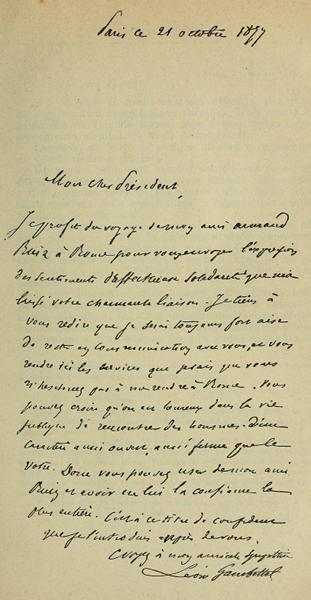 Paris ce 21 octobre 1877
Mon cher Président,
Je profite du voyage de mon ami armand
Ruiz à Rome pour vous envoyer l'expression
des sentiments d'affectueuse solidarité que m'a
laissé votre charmante liaison. Je tiens à
vous redire que je serai toujours fort aise
de rester en communication avec vous, de vous
rendre ici les services que je sais que vous
n'hésiterez pas à me rendre à Rome. Vous
pouvez croire qu'on est heureux dans la vie
publique de rencontrer des hommes d'un
caractère aussi ouvert, aussi ferme que le
vôtre. Donc vous pouvez user de mon ami
Ruiz et avoir en lui la confiance la
plus entière. C'est à ce titre de confident
que je l'introduis auprès de vous.
Croyez à mon amicale sympathie
Léon Gambetta